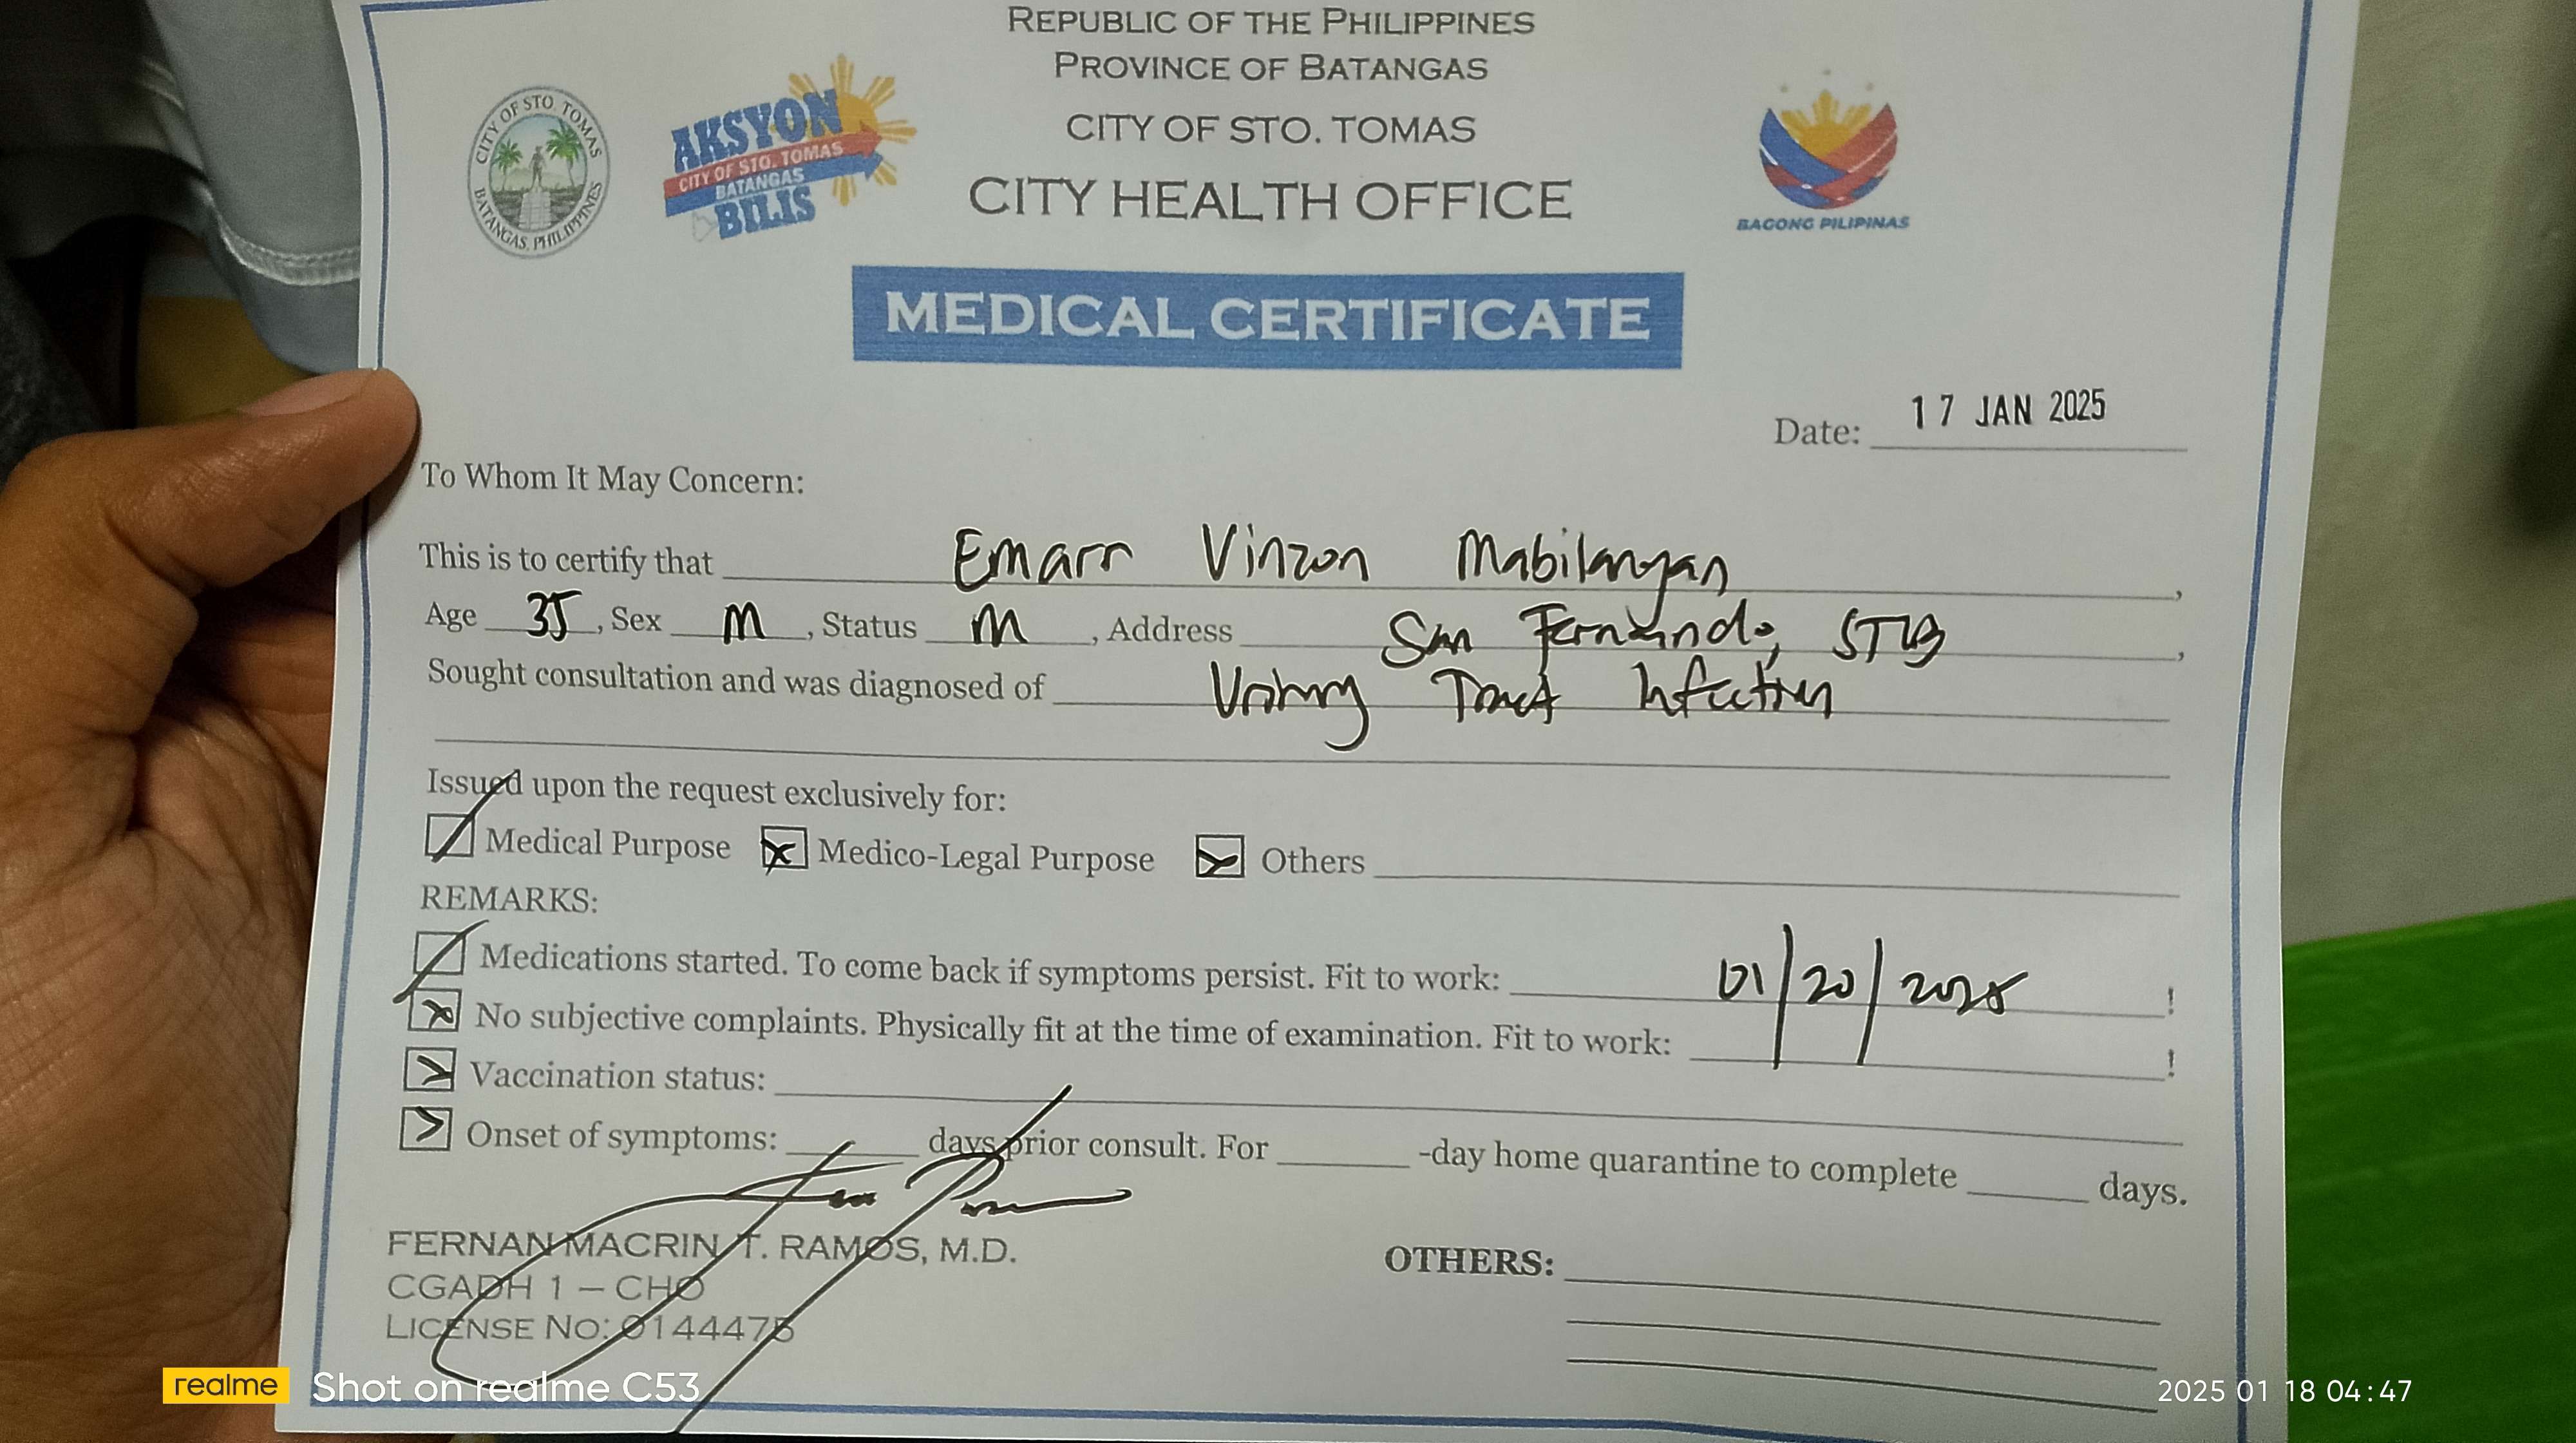 REPUBLIC OF THE PHILIPPINES
PROVINCE OF BATANGAS
CITY OF STO. TOMAS
CITY HEALTH OFFICE
CITY OF STO. TOMAS
BATANGAS, PHILIPPINES
AKSYON
CITY OF STO. TOMAS
BATANGAS
BILIS
BAGONG PILIPINAS
MEDICAL CERTIFICATE
Date: 17 JAN 2025
To Whom It May Concern:
This is to certify that Emarr Vinzon Mabilangan,
Age 35, Sex M, Status M, Address San Fernando, STB,
Sought consultation and was diagnosed of Urinary Tract Infection
Issued upon the request exclusively for:
Medical Purpose Medico-Legal Purpose Others
REMARKS:
Medications started. To come back if symptoms persist. Fit to work: 01/20/2025!
No subjective complaints. Physically fit at the time of examination. Fit to work: !
Vaccination status:
Onset of symptoms: days prior consult. For -day home quarantine to complete days.
FERNAN MACRIN T. RAMOS, M.D.
CGADH 1 – CHO
LICENSE NO: 0144475
OTHERS:
realme Shot on realme C53
2025 01 18 04:47